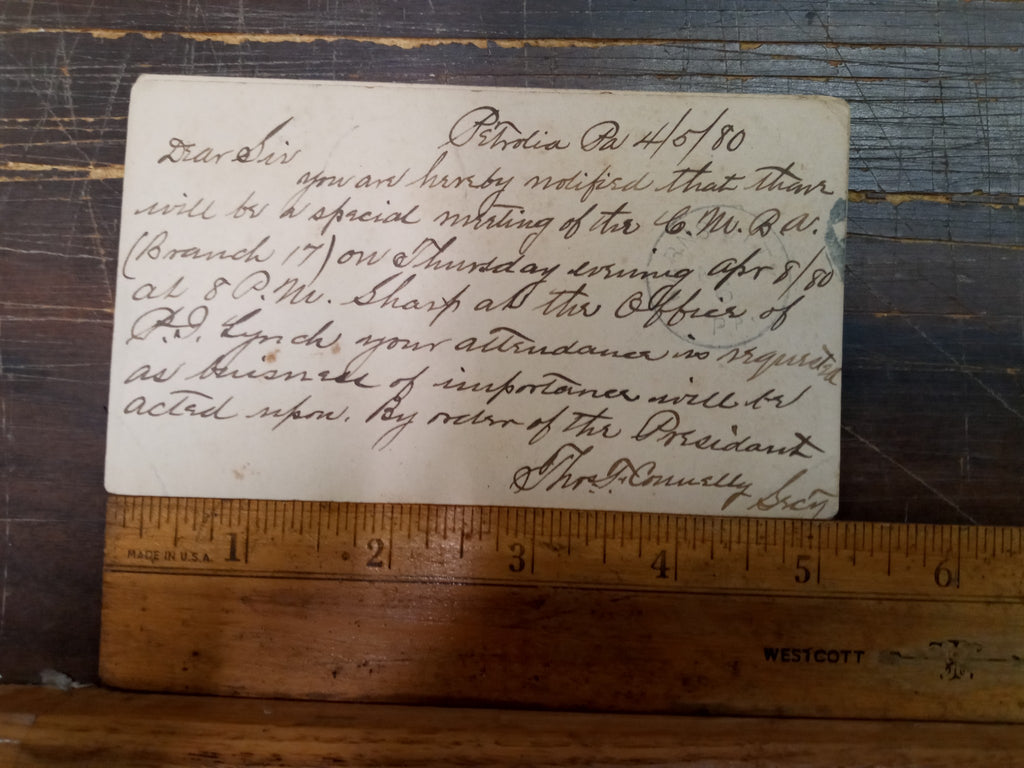 Petrolia Pa 4/5/80
Dear Sir
you are hereby notified that thare
will be a special meeting of the C. M. B. A.
(Branch 17) on Thursday evening Apr 8/80
at 8 P.M. Sharp at the Office of
P. J. Lynch your attendance is requested
as buisness of importance will be
acted upon. By order of the President
Thos. F. Connelly Secy
MADE IN U.S.A. 1 2 3 4 5 6
WESTCOTT